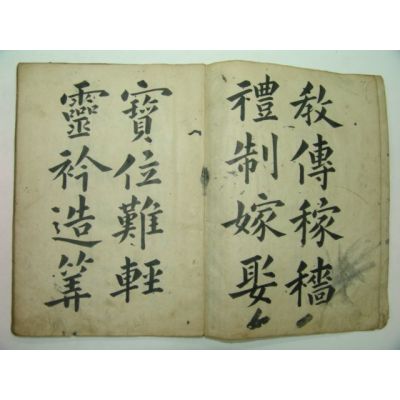 教傳稼穡
禮制嫁娶
寶位難輕
靈衿造筭